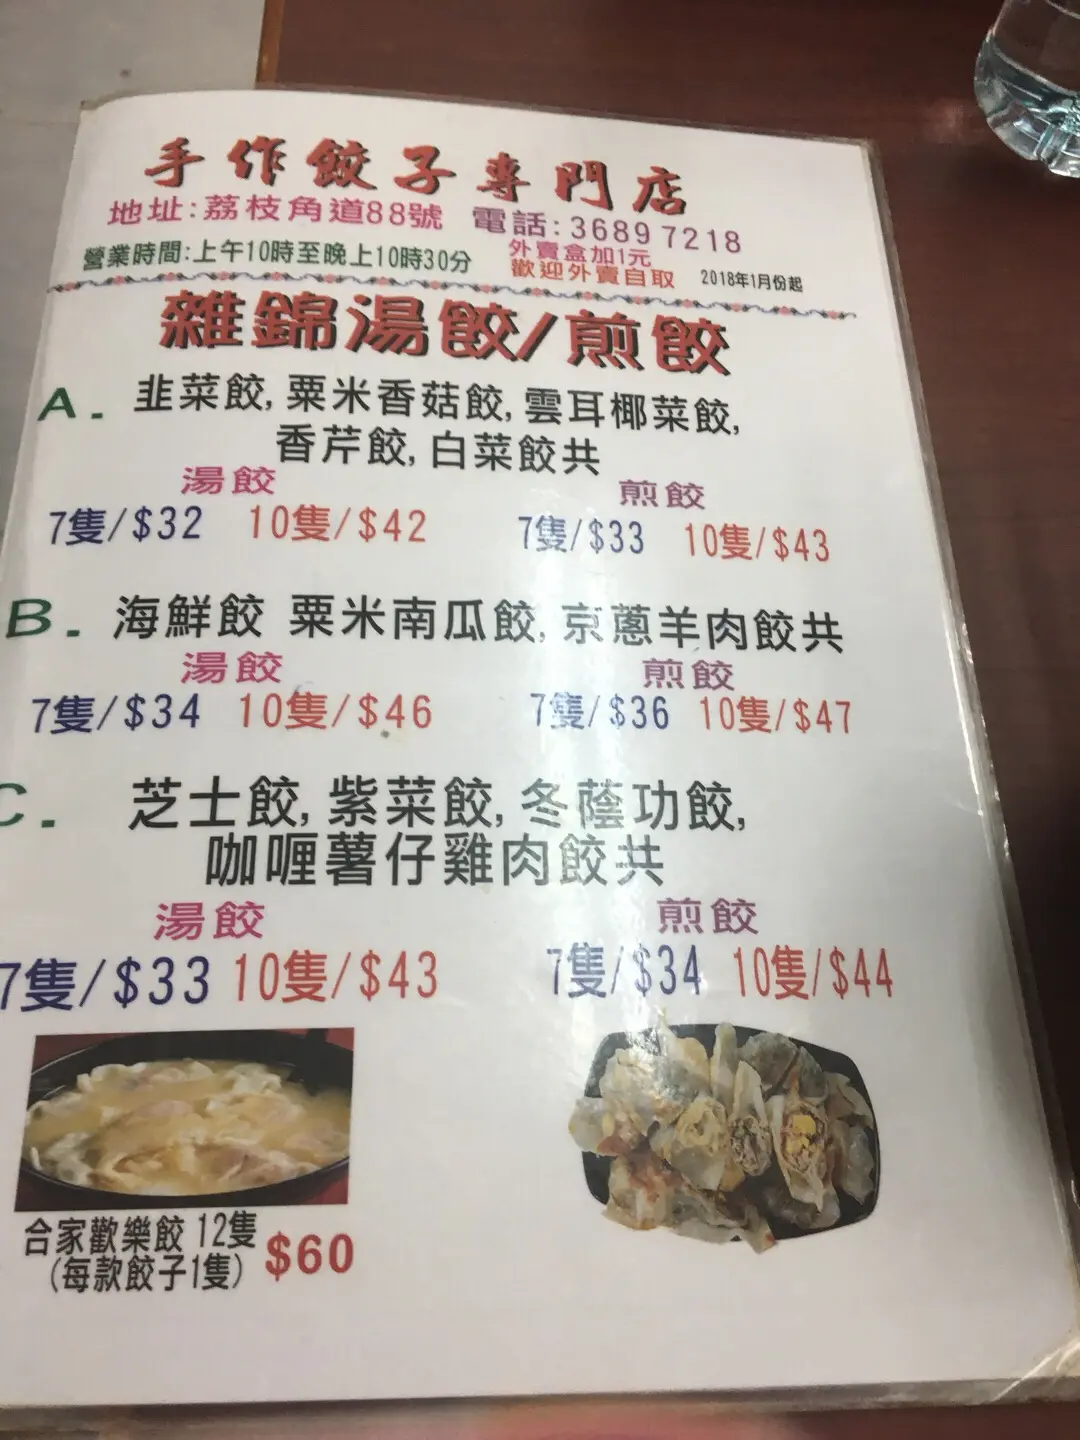 手作餃子專門店
地址:荔枝角道88號 電話:3689 7218
營業時間:上午10時至晚上10時30分
外賣盒加1元
歡迎外賣自取 2018年1月份起
雜錦湯餃/煎餃
A. 韭菜餃,粟米香菇餃,雲耳椰菜餃,
香芹餃,白菜餃共
湯餃 煎餃
7隻/$32 10隻/$42 7隻/$33 10隻/$43
B. 海鮮餃 粟米南瓜餃,京蔥羊肉餃共
湯餃 煎餃
7隻/$34 10隻/$46 7隻/$36 10隻/$47
C. 芝士餃,紫菜餃,冬蔭功餃,
咖喱薯仔雞肉餃共
湯餃 煎餃
7隻/$33 10隻/$43 7隻/$34 10隻/$44
合家歡樂餃 12隻 $60
(每款餃子1隻)